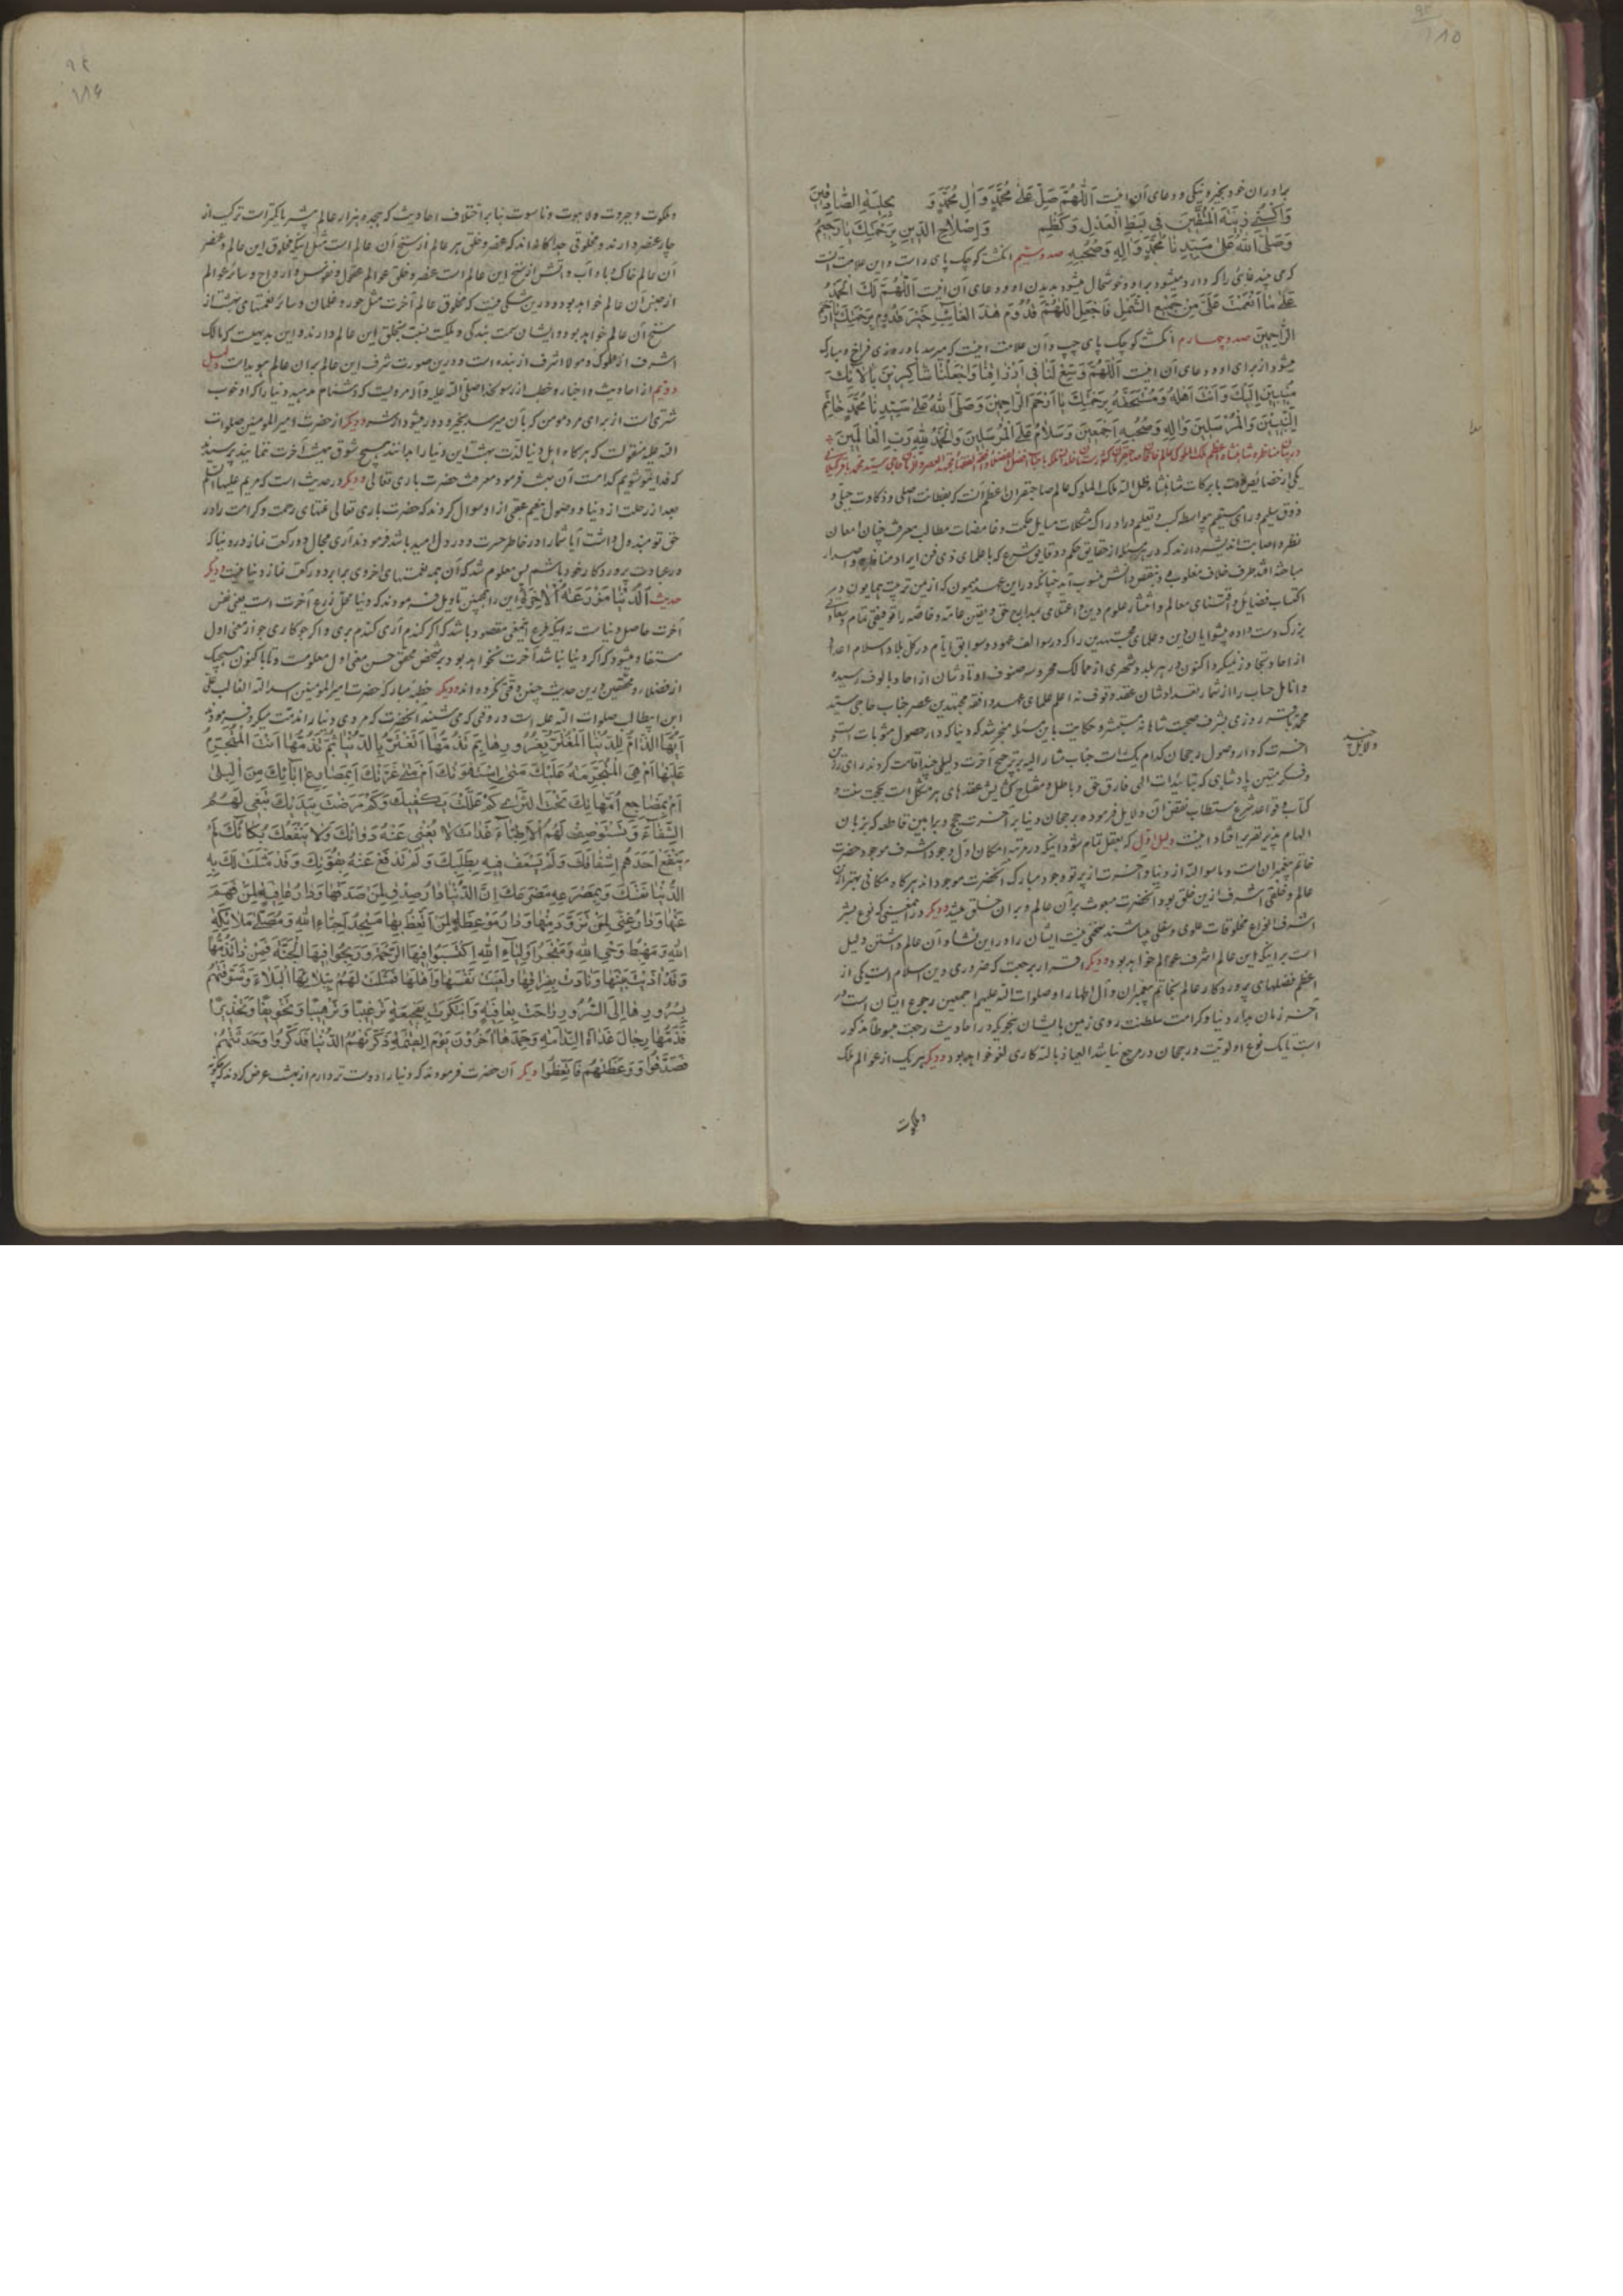 برادران خود بخیر و نیکی و دعای آن اینست اَللّهُمَّ صَلِّ عَلیٰ مُحَمَّدٍ وَ اٰلِ مُحَمَّدٍ وَ بِحِلْیَةِ الصّٰالِحینَ
وَ اَلْبِسْنی زینَةَ الْمُتَّقینَ فی بَسْطِ الْعَدْلِ وَ کَظْمِ وَ اِصْلٰاحِ الدّینِ بِرَحْمَتِکَ یٰا رَحیمُ
وَ صَلَّی اللّٰهُ عَلیٰ سَیِّدِنٰا مُحَمَّدٍ وَ اٰلِهِ وَ صَحْبِهِ صد و سیم انگشت کوچک پای راست و این علامت آنست
که می‌چند غایبی را که دارد میشود براو و خوشحال میشود بدیدن او و دعای آن اینست اَللّهُمَّ لَکَ الْحَمْدُ
عَلیٰ مٰا اَنْعَمْتَ عَلَیَّ مِنْ جَمیعِ الشَّمْلِ فَاجْعَلِ اللّٰهُمَّ قُدُومَ هٰذَا الْغٰائِبِ خَیْرَ قُدُومٍ بِرَحْمَتِکَ یٰا اَرْحَمَ
الرّٰاحِمینَ صد و چهارم انگشت کوچک پای چپ و آن علامت اینست که میرسد باو روزی فراخ و مبارک
میشود از برای او و دعای آن اینست اَللّهُمَّ وَسِّعْ لَنٰا فی اَرْزٰاقِنٰا وَ اجْعَلْنٰا شٰاکِرینَ بِاٰلٰائِکَ
مُنیبینَ اِلَیْکَ وَ اَنْتَ اَهْلُهُ وَ مُسْتَحِقُّهُ بِرَحْمَتِکَ یٰا اَرْحَمَ الرّٰاحِمینَ وَ صَلَّی اللّٰهُ عَلیٰ سَیِّدِنٰا مُحَمَّدٍ خٰاتَمِ
النَّبِیّینَ وَ الْمُرْسَلینَ وَ اٰلِهِ وَ صَحْبِهِ اَجْمَعینَ وَ سَلٰامٌ عَلَی الْمُرْسَلینَ وَ الْحَمْدُ لِلّٰهِ رَبِّ الْعٰالَمینَ
در بیان مناظره شاهنشاه اعظم ملک الملوک عالم خاقان صاحبقران با جناب حاجی سید محمد باقر
یکی از خصایص ذات بابرکات شاهنشاه ظل الله ملک الملوک عالم صاحبقران اعظم آنست که بفطانت اصلی و ذکاوت جبلی و
ذوق سلیم و رای مستقیم بواسطه کسب و تعلیم در ادراک مشکلات مسایل حکمت و غامضات مطالب معرفت چنان امعان
نظر و اصابت اندیشه دارند که در هر مسئله از حقایق حکم و دقایق شرع که با علمای ذی فن ایراد مناظره و اصدار
مباحثه افتد طرف خلاف مغلوب و بنقص دانش منسوب آید چنانکه در این عهد میمون که از یمن تربیت همایون در
اکتساب فضایل و اقتنای معالم و انتشار علوم دین و اعتلای مدارج حق و یقین عامه و خاصه را توفیقی تمام و سعادتی
بزرگ دست داده پیشوایان دین و علمای مجتهدین را که در سوالف عهود و سوابق ایام در کل بلاد اسلام اعداد
از احاد تجاوز نمیکرد اکنون در هر بلد و شهری از ممالک محروسه صنوف اوتادشان از احاد بالوف رسیده
و انامل حساب را از شمار تعدادشان عقد وقوف نه اعلم علمای عهد و افقه مجتهدین عصر جناب حاجی سید
محمد باقر روزی بشرف صحبت شاهانه مستسعد و حکایت باین مسئله منجر شد که دنیا که دار حصول مثوباتست و
آخرت که دار وصول رجحان کدام یک است جناب مشار الیه بر ترجیح آخرت دلیلی چند اقامت کردند رای رزین
و فکر متین پادشاهی که بتاییدات الهی فارق حق و باطل و مفتاح گشایش عقدهای هر مشکل است بحجت سنت و
کتاب و قواعد شرع مستطاب نقض آن دلایل فرموده بر رجحان دنیا بر آخرت حجج و براهین قاطعه که بزبان
الهام پذیر تقریر افتاد اینست دلیل اول که بعقل تمام شود اینکه در مرتبه امکان اول وجود اشرف موجود حضرت
خاتم پیغمبران است و ماسوا الله از دنیا و آخرت از پرتو وجود مبارک آنحضرت موجود اند هر گاه مکانی بهتر از این
عالم و خلقی اشرف از این خلق بود آنحضرت مبعوث بر آن عالم و بر آن خلق میشد و دیگر در اینمعنی که نوع بشر
اشرف انواع مخلوقات علوی و سفلی میباشند سخنی نیست ایشان را در این نشاه و آن عالم داشتن دلیل
است بر اینکه این عالم اشرف عوالم خواهد بود و دیگر اقرار برجعت که ضروری دین اسلام است یکی از
اعظم فضلهای پروردگار عالم بخاتم پیغمبران و آل اطهار او صلوات الله علیهم اجمعین رجوع ایشان است در
آخر زمان بدار دنیا و کرامت سلطنت روی زمین بایشان بنحویکه در احادیث رجعت مبسوطا مذکور
است تا یک نوع اولویت و رجحان در مرجع نباشد العیاذ بالله کاری لغو خواهد بود و دیگر هر یک از عوالم ملک
و ملکوت
و ملکوت و جبروت و لاهوت و ناسوت بنا بر اختلاف احادیث که هیجده هزار عالم بیشتر یا کمتر است ترکیب از
چار عنصر دارند و مخلوقی جداگانه اند که عنصر و خلق هر عالم از سنخ آن عالم است مثل اینکه مخلوق این عالم و عنصر
آن عالم خاک و باد و آب و آتش از سنخ این عالم است عنصر و خلق عوالم عقول و نفوس و ارواح و سائر عوالم
از جنس آن عالم خواهد بود و در این شکی نیست که مخلوق عالم آخرت مثل حور و غلمان و سائر نعمتهای بهشت از
سنخ آن عالم خواهد بود و ایشان سمت بندگی و ملکیت نسبت بخلق این عالم دارند و این بدیهیست که مالک
اشرف از مملوک و مولا اشرف از بنده است و در این صورت شرف این عالم بر آن عالم هویداست دلیل
دویم از احادیث و اخبار و خطب از رسول خدا صلی الله علیه و آله مرویست که دشنام مدهید دنیا را که او خوب
شتری است از برای مرد مومن که بآن میرسد بخیر و دور میشود از شر و دیگر از حضرت امیر المومنین صلوات
الله علیه منقولست که هر گاه اهل دنیا لذت بهشت این دنیا را بدانند هیچ شوق بهشت آخرت ننمایند پرسیدند
که فدایتو شویم کدامست آن بهشت فرمود معرفت حضرت باری تعالی و دیگر در حدیث است که مریم علیها السلام
بعد از رحلت از دنیا و وصول بنعیم عقبی از او سوال کردند که حضرت باری تعالی نعمتهای رحمت و کرامت را در
حق تو مبذول داشت آیا شما را در خاطر حسرت و در دل امید باشد فرمودند آری مجال دو رکعت نماز در دنیا که
در عبادت پروردگار خود باشم پس معلوم شد که آن همه نعمتهای اخروی برابر دو رکعت نماز دنیا نیست و دیگر
حدیث اَلدُّنْیٰا مَزْرَعَةُ الْاٰخِرَةِ این را همچنین تاویل فرمودند که دنیا محل زرع آخرت است یعنی نفس
آخرت حاصل دنیاست نه اینکه زرع اینمعنی مقصود باشد که اگر گندم آری گندم بری و اگر جو کاری جو از معنی اول
مستفاد میشود که اگر دنیا نباشد آخرت نخواهد بود و بر شخص محقق حسن معنی اول معلومست و تا باکنون هیچیک
از فضلا و محققین در این حدیث چنین دقتی نکرده اند و دیگر خطبه مبارکه حضرت امیر المومنین اسد الله الغالب علی
ابن ابیطالب صلوات الله علیه است در وقتی که می‌شنید آنحضرت که مردی دنیا را مذمت میکرد فرمودند
اَیُّهَا الذّٰامُّ لِلدُّنْیَا الْمُغْتَرُّ بِغُرُورِهٰا بِمَ تَذُمُّهٰا اَتَغْتَرُّ بِالدُّنْیٰا ثُمَّ تَذُمُّهٰا اَنْتَ الْمُتَجَرِّمُ
عَلَیْهٰا اَمْ هِیَ الْمُتَجَرِّمَةُ عَلَیْکَ مَتَی اسْتَهْوَتْکَ اَمْ مَتیٰ غَرَّتْکَ اَبِمَصٰارِعِ اٰبٰائِکَ مِنَ الْبِلیٰ
اَمْ بِمَضٰاجِعِ اُمَّهٰاتِکَ تَحْتَ الثَّریٰ کَمْ عَلَّلْتَ بِکَفَّیْکَ وَ کَمْ مَرَّضْتَ بِیَدَیْکَ تَبْغی لَهُمُ
الشِّفٰاءَ وَ تَسْتَوْصِفُ لَهُمُ الْاَطِبّٰاءَ غَدٰاةَ لٰا یُغْنی عَنْهُ دَوٰائُکَ وَ لٰا یَنْفَعُکَ بُکٰائُکَ لَمْ
یَنْفَعْ اَحَدَهُمْ اِشْفٰاقُکَ وَ لَمْ تُسْعَفْ فیهِ بِطَلِبَتِکَ وَ لَمْ تَدْفَعْ عَنْهُ بِقُوَّتِکَ وَ قَدْ مَثَّلَتْ لَکَ بِهِ
الدُّنْیٰا نَفْسَکَ وَ بِمَصْرَعِهِ مَصْرَعَکَ اِنَّ الدُّنْیٰا دٰارُ صِدْقٍ لِمَنْ صَدَقَهٰا وَ دٰارُ عٰافِیَةٍ لِمَنْ فَهِمَ
عَنْهٰا وَ دٰارُ غِنیً لِمَنْ تَزَوَّدَ مِنْهٰا وَ دٰارُ مَوْعِظَةٍ لِمَنِ اتَّعَظَ بِهٰا مَسْجِدُ اَحِبّٰاءِ اللّٰهِ وَ مُصَلّیٰ مَلٰائِکَةِ
اللّٰهِ وَ مَهْبِطُ وَحْیِ اللّٰهِ وَ مَتْجَرُ اَوْلِیٰاءِ اللّٰهِ اِکْتَسَبُوا فیهَا الرَّحْمَةَ وَ رَبِحُوا فیهَا الْجَنَّةَ فَمَنْ ذٰا یَذُمُّهٰا
وَ قَدْ اٰذَنَتْ بِبَیْنِهٰا وَ نٰادَتْ بِفِرٰاقِهٰا وَ نَعَتْ نَفْسَهٰا وَ اَهْلَهٰا فَمَثَّلَتْ لَهُمْ بِبَلٰائِهَا الْبَلٰاءَ وَ شَوَّقَتْهُمْ
بِسُرُورِهٰا اِلَی السُّرُورِ رٰاحَتْ بِعٰافِیَةٍ وَ ابْتَکَرَتْ بِفَجیعَةٍ تَرْغیبًا وَ تَرْهیبًا وَ تَخْویفًا وَ تَحْذیرًا
فَذَمَّهٰا رِجٰالٌ غَدٰاةَ النَّدٰامَةِ وَ حَمِدَهٰا اٰخَرُونَ یَوْمَ الْقِیٰمَةِ ذَکَّرَتْهُمُ الدُّنْیٰا فَذَکَرُوا وَ حَدَّثَتْهُمْ
فَصَدَّقُوا وَ وَعَظَتْهُمْ فَاتَّعَظُوا دیگر آن حضرت فرمودند که دنیا را دوست تر دارم از بهشت عرض کردند که چگونه